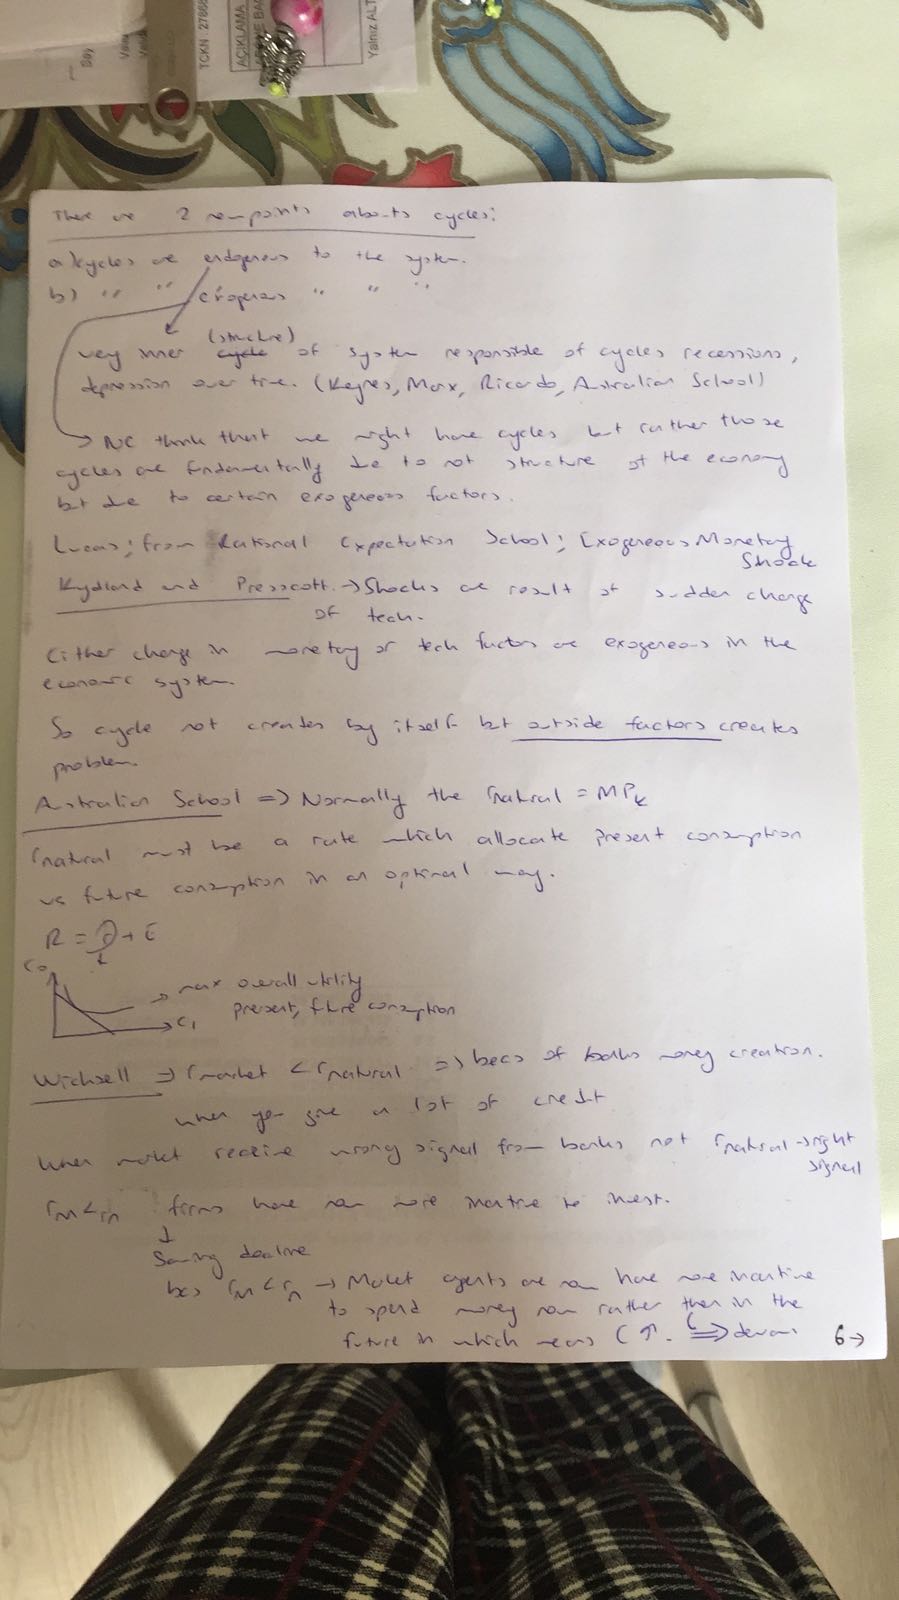 TCKN : 27868
AÇIKLAMA
Yalnız ALT
There are 2 viewpoints abouts cycles:
a) cycles are endogenous to the system.
b) " " exogenous " " "
(structure)
very inner cycle of system responsible of cycles recessions,
depression over time. (Keynes, Marx, Ricardo, Australian School)
→ NC think that we might have cycles but rather those
cycles are fundamentally due to not structure of the economy
but due to certain exogeneous factors.
Lucas; from Rational Expectation School; Exogeneous Monetary
Shock
Kydland and Presscott. → Shocks are result of sudden change
of tech.
Either change in monetary or tech factors are exogeneous in the
economic system.
So cycle not creates by itself but outside factors creates
problem.
Australian School => Normally the rnatural = MPk
rnatural must be a rate which allocate present consumption
vs future consumption in an optimal way.
R = r + E
C0
→ max overall utility
present, future consumption
C1
Wicksell → rmarket < rnatural => becs of banks money creation.
when you give a lot of credit
When market receive wrong signal from banks not rnatural → right
signal
rM < rn firms have now more incentive to invest.
↓
Saving decline
bcs rM < rn → Market agents are now have more incentive
to spend money now rather than in the
future in which means C ↑.
6 →